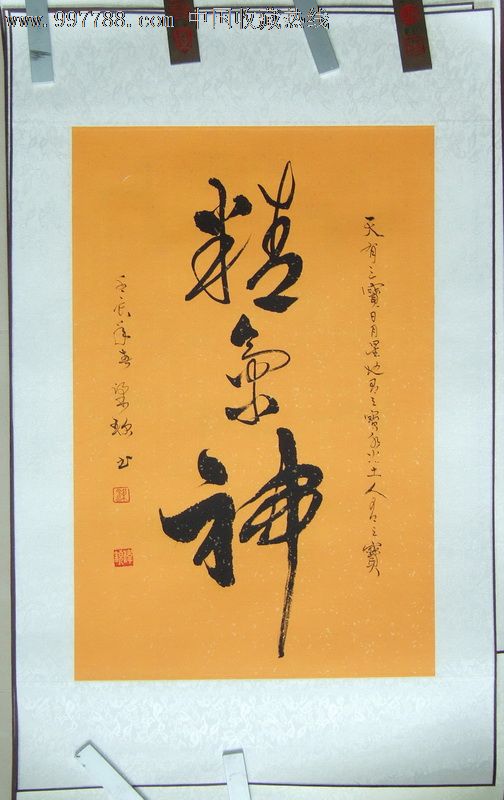 www.997788.com 中国收藏热线
天有三寶日月星地有三寶水火土人有三寶
精氣神
年春梁书